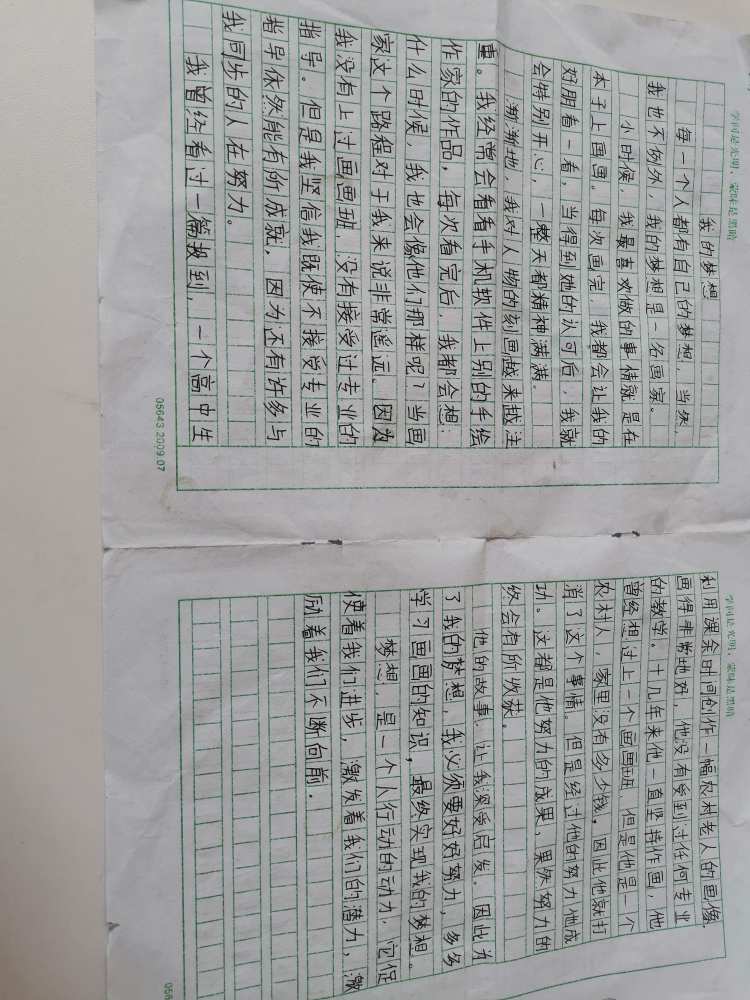 学问是光明，蒙昧是黑暗
我的梦想
每一个人都有自己的梦想，当然，
我也不例外，我的梦想是一名画家。
小时候，我最喜欢做的事情就是在
本子上画画。每次画完，我都会让我的
好朋看一看，当得到她的认可后，我就
会特别开心，一整天都精神满满。
渐渐地，我对人物的刻画越来越注
重。我经常会看看手机软件上别的手绘
作家的作品，每次看完后，我都会想：
什么时候，我也会像他们那样呢？当画
家这个路程对于我来说非常遥远。因为
我没有上过画画班，没有接受过专业的
指导。但是我坚信我既使不接受专业的
指导依然能有所成就，因为还有许多与
我同步的人在努力。
我曾经看过一篇报到，一个高中生
05643.2009.07
学问是光明，蒙昧是黑暗
利用课余时间创作一幅农村老人的画像，
画得非常地好，他没有受到过任何专业
的教学。十几年来他一直坚持作画，他
曾经想过上一个画画班，但是他是一个
农村人，家里没有多少钱。因此他就打
消了这个事情。但是经过他的努力他成
功。这都是他努力的成果，果然努力的
终会有所收获。
他的故事，让我深受启发。因此为
了我的梦想，我必须要好好努力，多多
学习画画的知识，最终实现我的梦想。
梦想，是一个人行动的动力，它促
使着我们进步，激发着我们的潜力，激
励着我们不断向前。